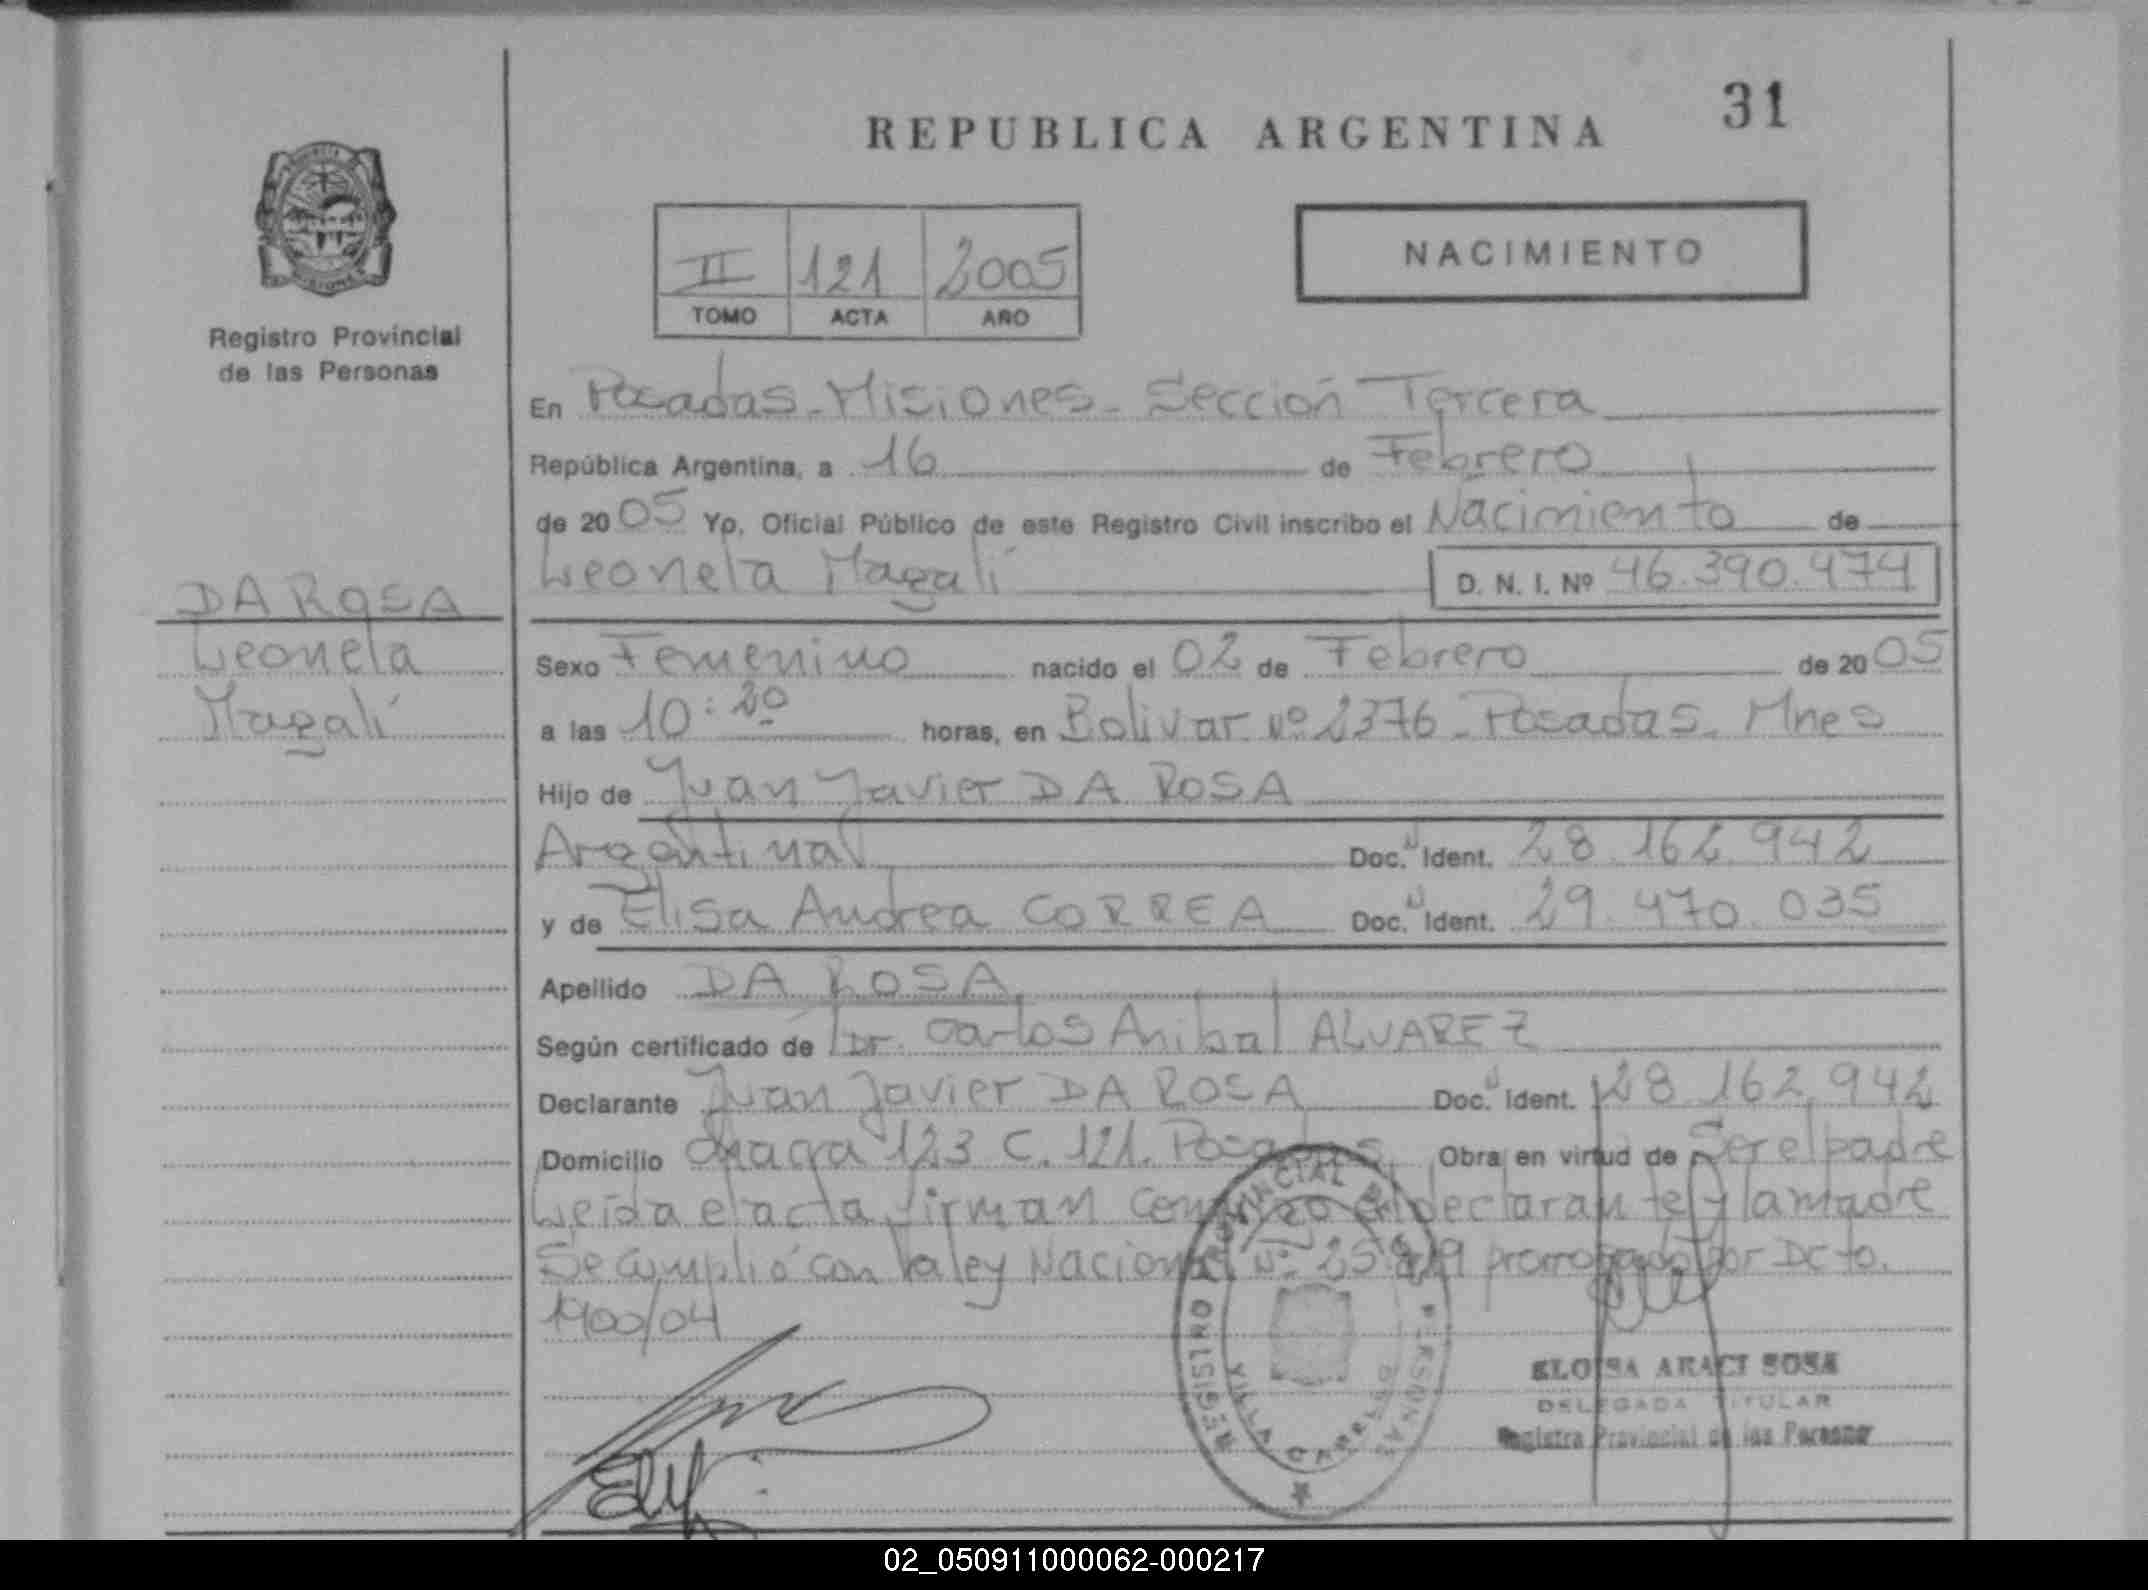 31
REPUBLICA ARGENTINA
NACIMIENTO
II 121 2005
TOMO ACTA AÑO
Registro Provincial
de las Personas
En Posadas - Misiones - Sección Tercera
República Argentina, a 16 de Febrero
de 2005 Yo, Oficial Público de este Registro Civil inscribo el Nacimiento de
Leonela Magalí D. N. I. Nº 46.390.474
DA ROSA
Leonela
Magalí
Sexo Femenino nacido el 02 de Febrero de 2005
a las 10:20 horas, en Bolivar Nº 2376 - Posadas - Mnes
Hijo de Juan Javier DA ROSA
Argentina Doc. Ident. 28.162.942
y de Elisa Andrea CORREA Doc. Ident. 29.470.035
Apellido DA ROSA
Según certificado de Dr. Carlos Anibal ALVAREZ
Declarante Juan Javier DA ROSA Doc. Ident. 28.162.942
Domicilio Chacra 123 C. 121. Posadas Obra en virtud de Ser el padre
Leída el acta firman conmigo el declarante y la madre
Se cumplió con la ley Nacional Nº 25.819 prorrogado por Dcto.
1900/04
REGISTRO PROVINCIAL DE LAS PERSONAS
VILLA CABELLO
ELOISA ARACI SOSA
DELEGADA TITULAR
Registro Provincial de las Personas
02_050911000062-000217